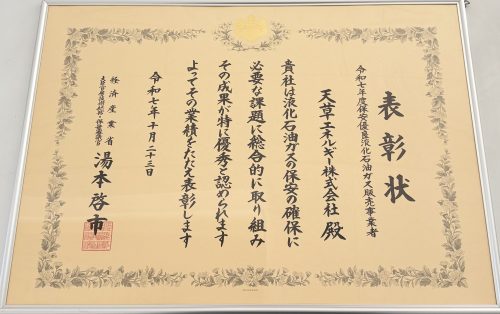 表彰状
令和七年度保安優良液化石油ガス販売事業者
天草エネルギー株式会社 殿
貴社は液化石油ガスの保安の確保に
必要な課題に総合的に取り組み
その成果が特に優秀と認められます
よってその業績をたたえ表彰します
令和七年十月二十三日
経済産業省
湯本啓市